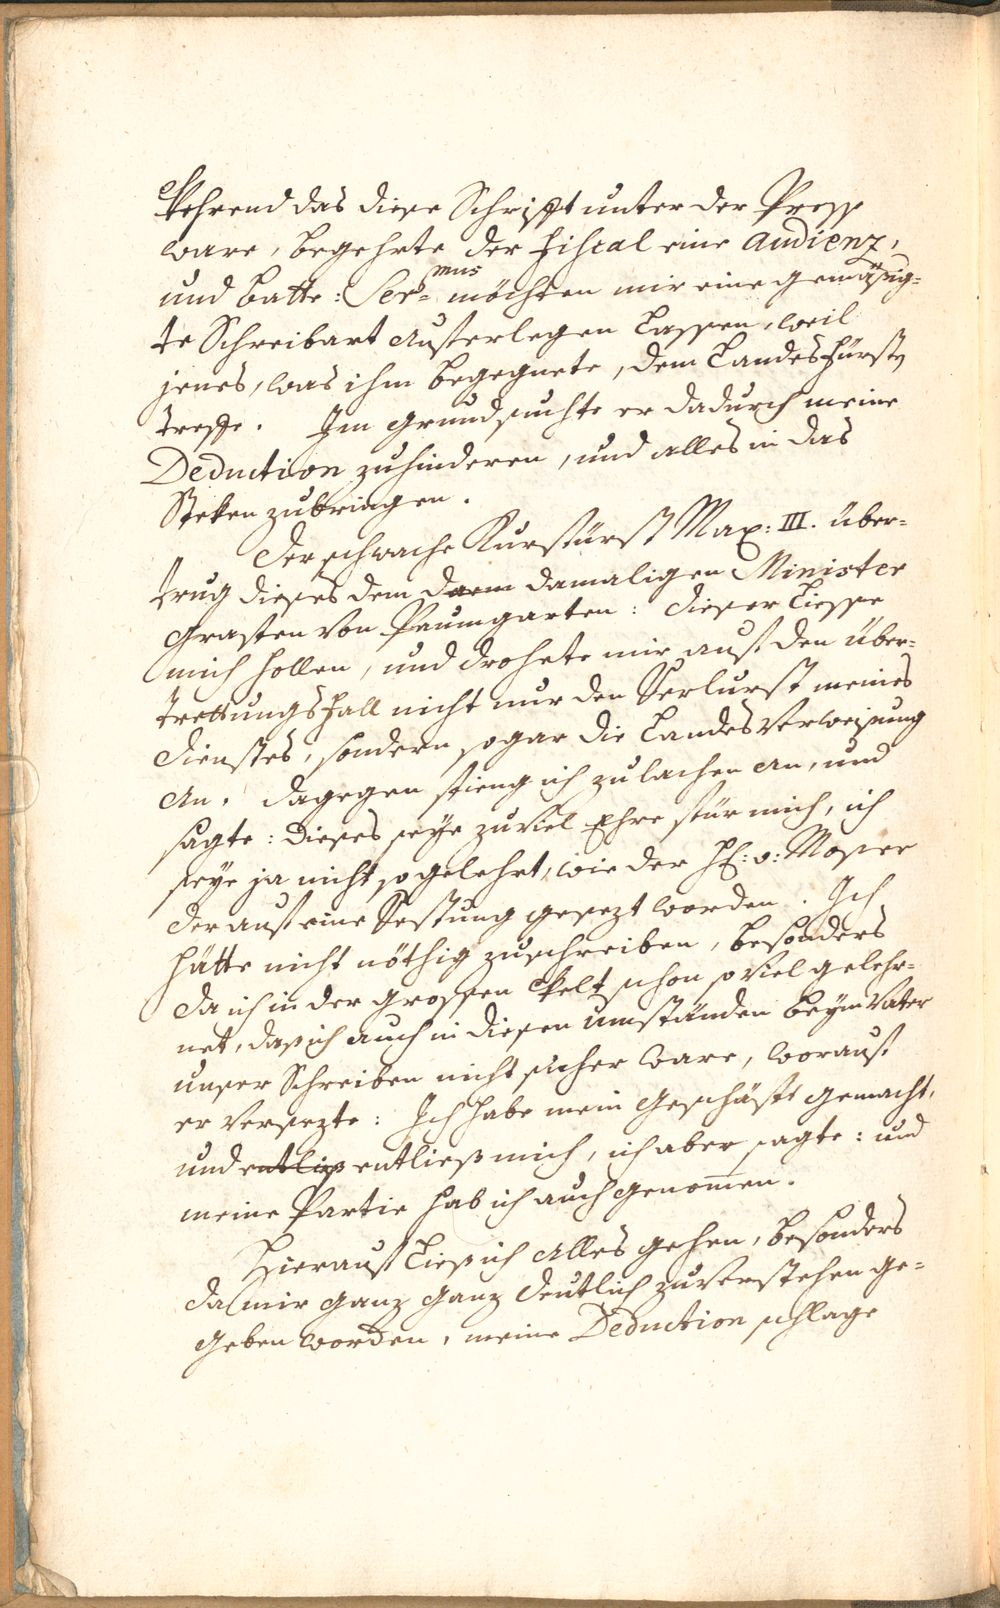 Wehrend das diese Schrifft unter der Press
ware, begehrte der Fiscal eine Audienz,
und batte: Ser.mus möchten mir eine gemäßig-
te Schreibart auferlegen lassen, weil
jenes, was ihm begegnete, dem Landesfürst
treffe. Im Grund suchte er dadurch meine
Deduction zu hinderen, und alles in das
Steken zu bringen.
Der schwache Kurfürst Max: III. über-
trug dieses dem damaligen Minister
Grafen von Paumgarten: dieser liesse
mich hollen, und drohete mir auf den über-
trettungsfall nicht nur den Verlurst meines
dienstes, sondern sogar die Landesverweisung
an. dagegen fieng ich zu lachen an, und
sagte: dieses seye zu viel Ehre für mich, ich
seye ja nicht so gelehrt, wie der H: v: Moser
der auf eine Festung gesezt worden. Ich
hätte nicht nöthig zu schreiben, besonders
da ich in der grossen Welt schon so viel gelehr-
net, daß ich auch in diesen umständen beÿm Vater
unser Schreiben nicht sicher ware, worauf
er versezte: Ich habe mein Geschäft gemacht,
und entließ entließ mich, ich aber sagte: und
meine Partie hab ich auch genomen.
Hierauf ließ ich alles gehen, besonders
da mir ganz ganz deutlich zu verstehen ge-
geben worden, meine Deduction schlage